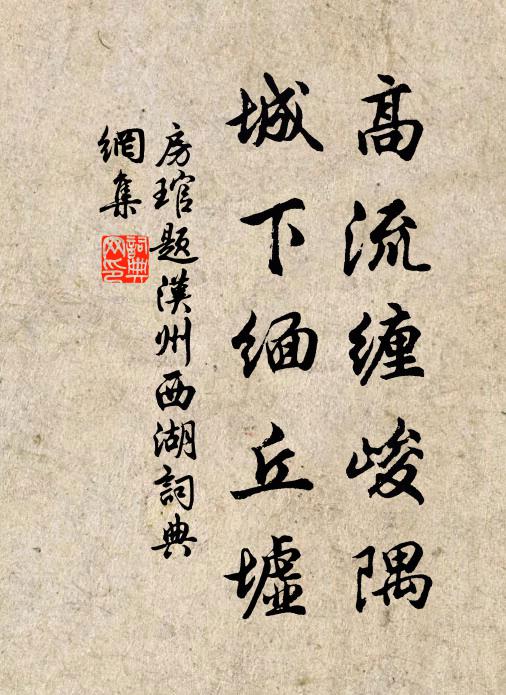 高流缠峻隅
城下缅丘墟
房琯题漢州西湖詞典
網集
詞典
网印